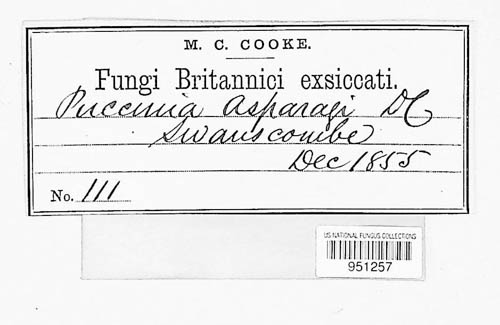 M. C. COOKE.
Fungi Britannici exsiccati.
Puccinia Asparagi DC
Swanscombe
Dec 1855
No. 111
US NATIONAL FUNGUS COLLECTIONS
951257